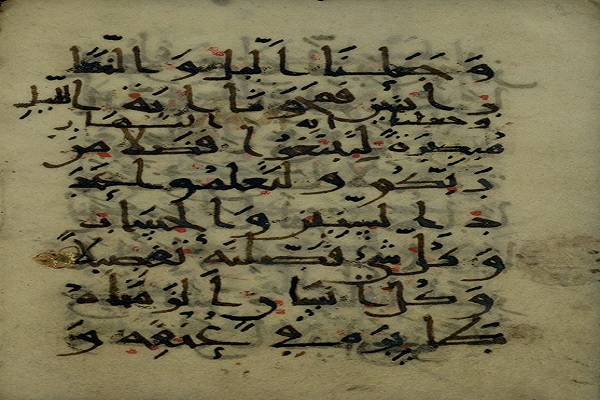 وَجَعَلنَا الَّيلَ وَالنَّهَا
رَ ايَتَينِ فَمَحَونَا ايَةَ الليل
وجعلنا اية النهار
مُبصِرَةً لِتَبتَغُوا فَضلًا مِن
رَبِّكُم وَلِتَعلَمُوا عَدَ
دَ السِّنِينَ وَالحِسَابَ
وَكُلَّ شَيءٍ فَصَّلنَهُ تَفصِيلًا
وَكُلَّ انسَانٍ الزَمنَاهُ
طَئِرَهُ فِي عُنُقِهِ وَ